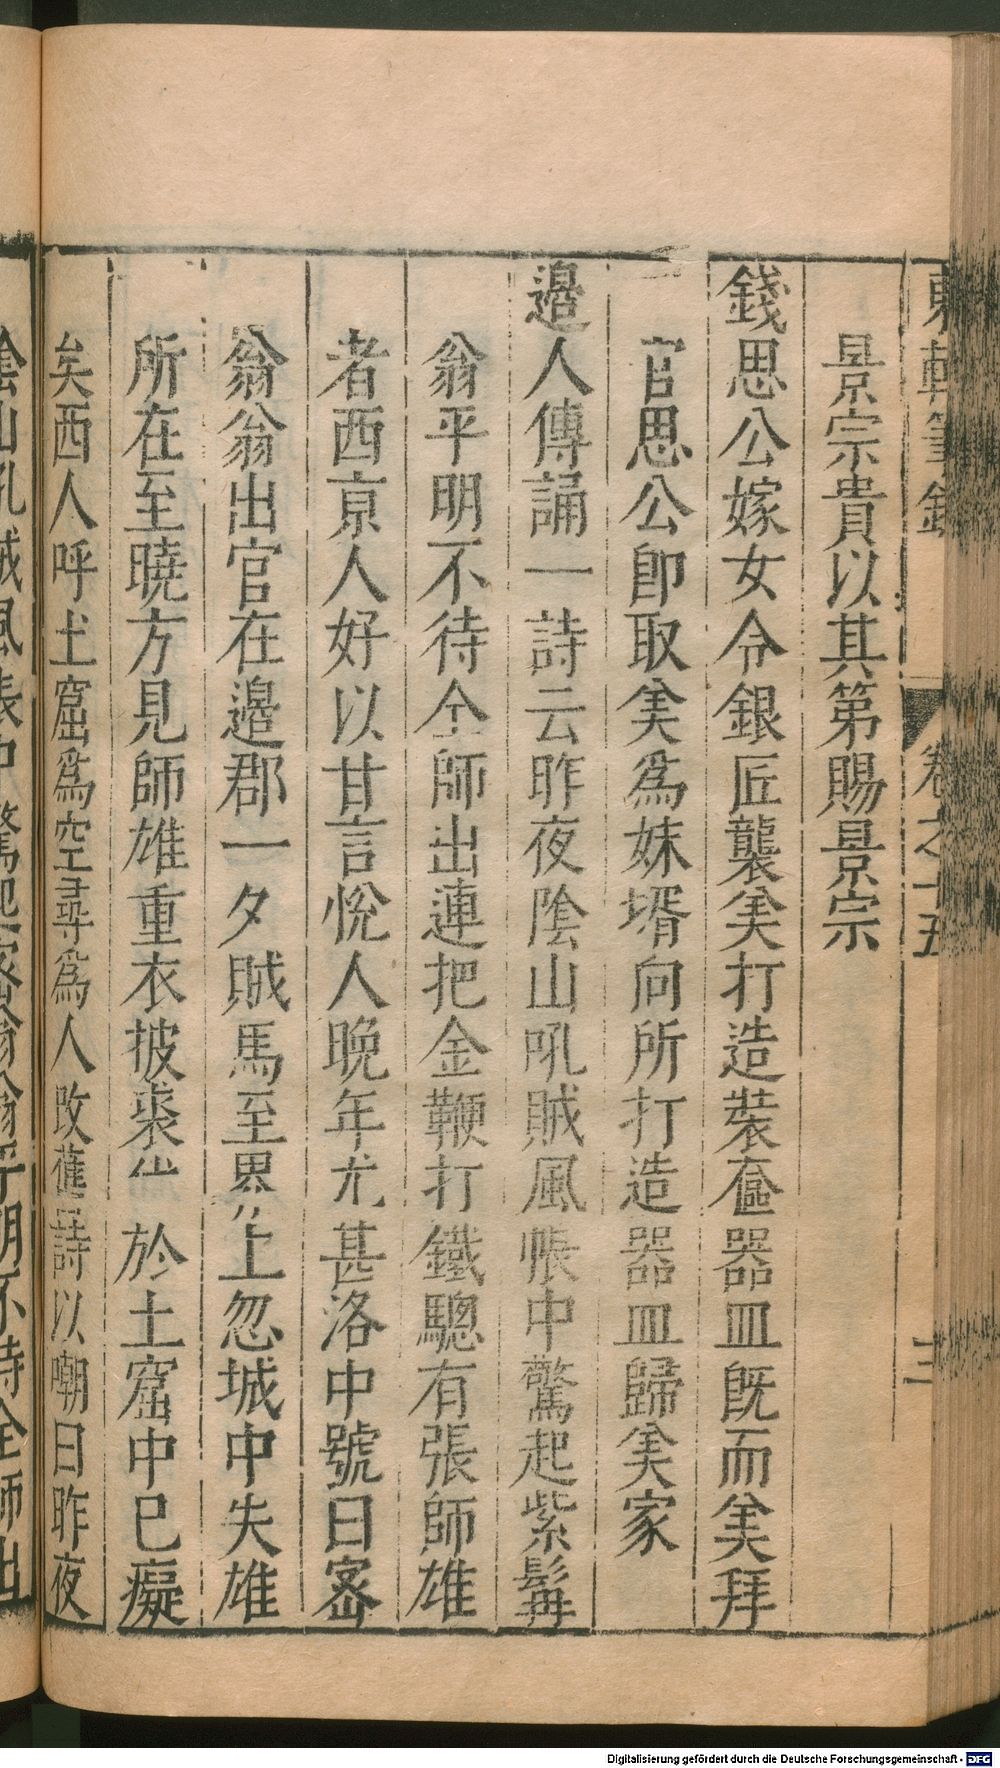 東軒筆錄 卷之十五 三
景宗貴以其第賜景宗
錢思公嫁女令銀匠龔美打造裝奩器皿既而美拜
官思公卽取美爲妹壻向所打造器皿歸美家
邉人傳誦一詩云昨夜陰山吼賊風帳中驚起紫髯
翁平明不待全師出連把金鞭打鐵驄有張師雄
者西京人好以甘言悅人晚年尤甚洛中號曰宻
翁翁出官在邉郡一夕賊馬至界上忽城中失雄
所在至曉方見師雄重衣披裘 於土窟中巳癡
矣西人呼土窟爲空尋爲人改舊詩以嘲曰昨夜
陰山吼賊風帳中驚起宻翁翁平明不待全師出
Digitalisierung gefördert durch die Deutsche Forschungsgemeinschaft - DFG